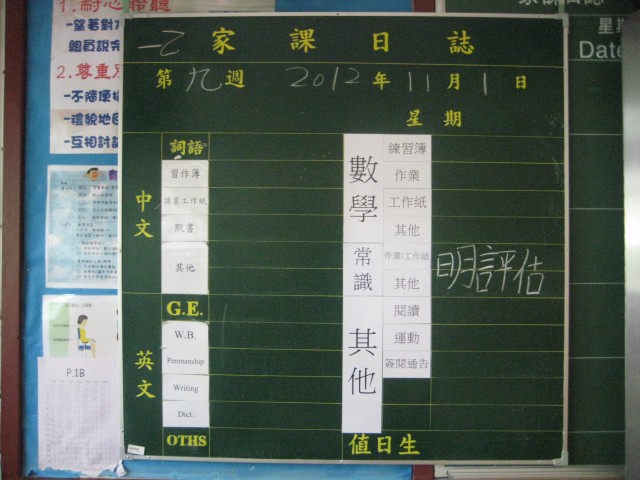 1.耐心聆聽
-望著對方
組員說完
2.尊重別
-不隨便
-禮貌地回
-互相討論
P.1B
一乙 家課日誌
第九週 2012年11月1日
星期
中文
詞語
習作簿
課室工作紙
默書
其他
英文
G.E.
W.B.
Penmanship
Writing
Dict.
OTHS
數學
練習簿
作業
工作紙
其他
常識
作業/工作紙
其他
明評估
其他
閱讀
運動
簽閱通告
值日生
家課日誌
星期
Date